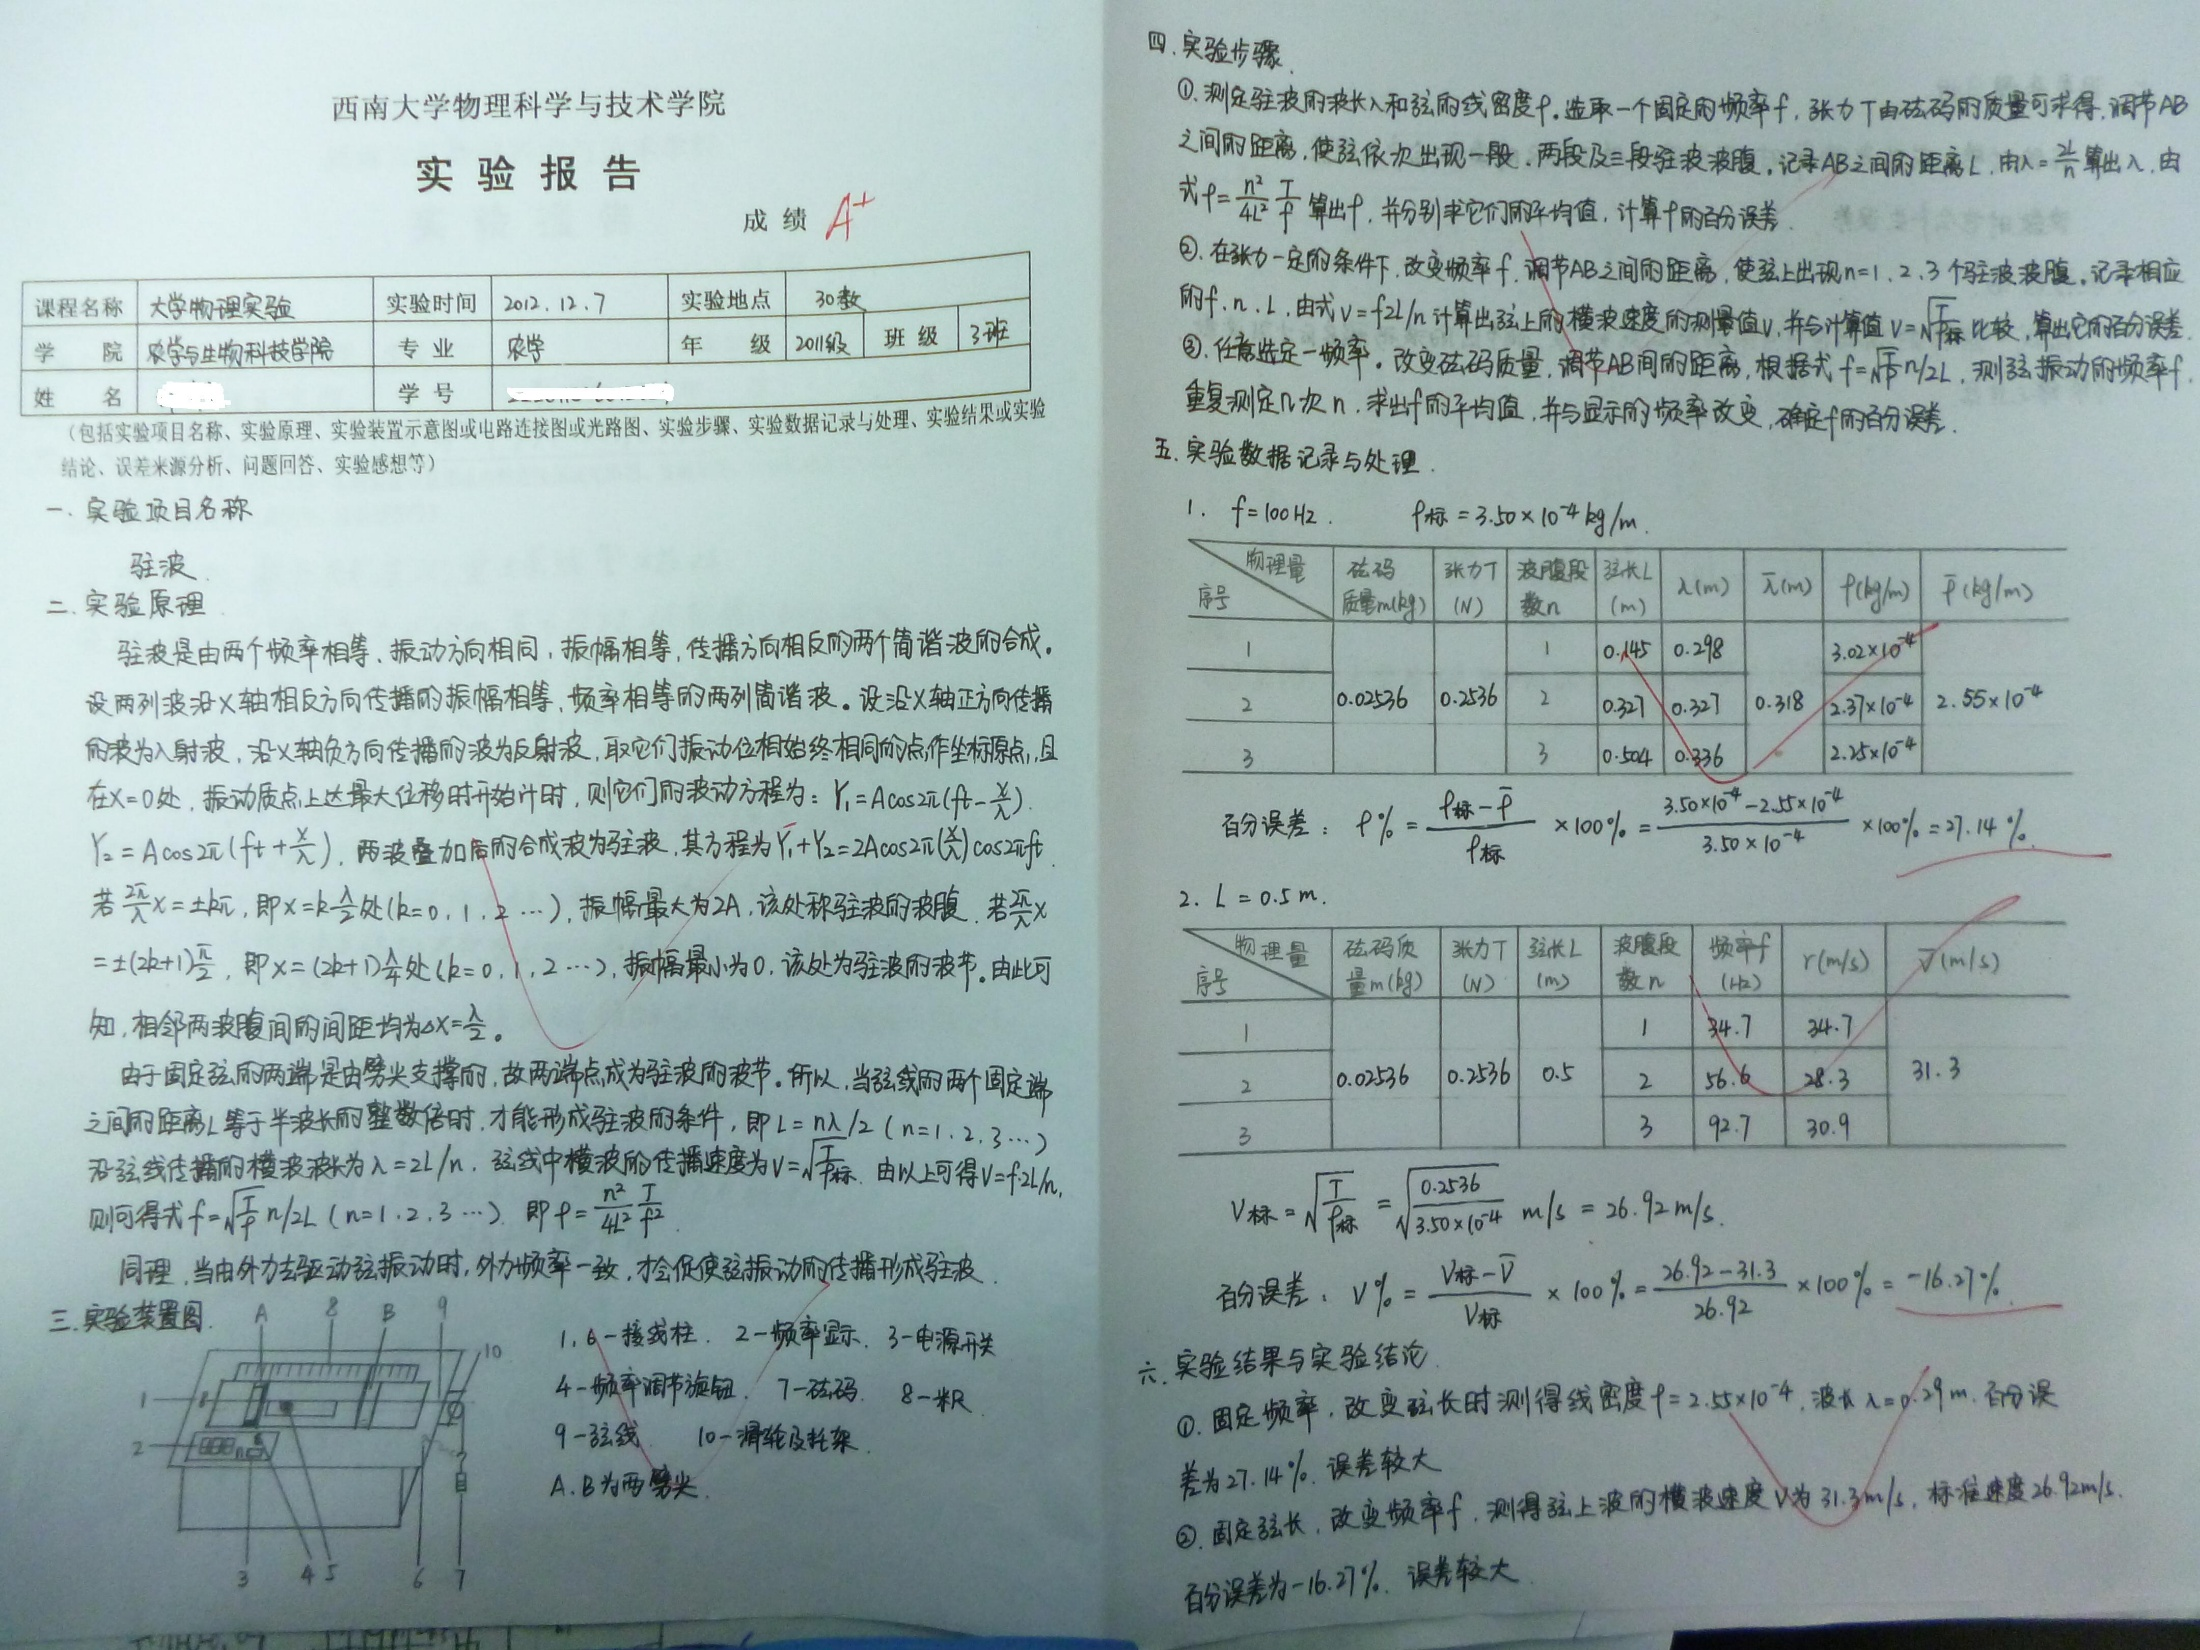 西南大学物理科学与技术学院
实验报告
成绩 A+
课程名称 大学物理实验 实验时间 2012.12.7 实验地点 30教
学院 农学与生物科技学院 专业 农学 年级 2011级 班级 3班
姓名 学号
（包括实验项目名称、实验原理、实验装置示意图或电路连接图或光路图、实验步骤、实验数据记录与处理、实验结果或实验
结论、误差来源分析、问题回答、实验感想等）
一. 实验项目名称
驻波.
二. 实验原理
驻波是由两个频率相等、振动方向相同，振幅相等，传播方向相反的两个简谐波的合成。
设两列波沿X轴相反方向传播的振幅相等，频率相等的两列简谐波。设沿X轴正方向传播
的波为入射波，沿X轴负方向传播的波为反射波，取它们振动位相始终相同的点作坐标原点，且
在X=0处，振动质点上达最大位移时开始计时，则它们的波动方程为：Y₁=Acos2π(ft-x/λ).
Y₂=Acos2π(ft+x/λ)，两波叠加后的合成波为驻波，其方程为Y₁+Y₂=2Acos2π(x/λ)cos2πft.
若2π/λ x=±kπ，即x=k λ/2处(k=0，1，2…)，振幅最大为2A，该处称驻波的波腹．若2π/λ x
=±(2k+1)π/2，即x=(2k+1)λ/4处(k=0，1，2…)，振幅最小为0，该处为驻波的波节。由此可
知，相邻两波腹间的间距均为△X=λ/2。
由于固定弦的两端是由劈尖支撑的，故两端点成为驻波的波节。所以，当弦线的两个固定端
之间的距离L等于半波长的整数倍时，才能形成驻波的条件，即L=nλ/2（n=1．2．3…）
沿弦线传播的横波波长为λ=2L/n．弦线中横波的传播速度为V=√(T/ρ标)．由以上可得V=f·2L/n，
则可得式f=√(T/ρ) n/2L（n=1．2．3…）．即ρ=n²/4L² T/f²
同理，当由外力去驱动弦振动时，外力频率一致，才会促使弦振动的传播形成驻波．
三.实验装置图.
A 8 B 9
10
1
2
3 4 5 6 7
1，6-接线柱． 2-频率显示． 3-电源开关
4-频率调节旋钮． 7-砝码． 8-米尺
9-弦线 10-滑轮及托架．
A．B为两劈尖．
四．实验步骤．
①．测定驻波的波长λ和弦的线密度ρ。选取一个固定的频率f，张力T由砝码的质量可求得，调节AB
之间的距离，使弦依次出现一段．两段及三段驻波波腹。记录AB之间的距离L．由λ=2L/n算出λ．由
式ρ=n²/4L² T/f 算出ρ．并分别求它们的平均值，计算ρ的百分误差．
②．在张力一定的条件下．改变频率f．调节AB之间的距离，使弦上出现n=1．2．3个驻波波腹．记录相应
的f．n．L．由式V=f2L/n计算出弦上的横波速度的测量值V，并与计算值V=√(T/ρ标)比较，算出它的百分误差．
③．任意选定一频率。改变砝码质量，调节AB间的距离，根据式f=√(T/ρ) n/2L，测弦振动的频率f．
重复测定几次n．求出f的平均值，并与显示的频率改变，确定f的百分误差．
五．实验数据记录与处理．
1. f=100Hz. ρ标=3.50×10⁻⁴kg/m.
物理量 序号 砝码质量m(kg) 张力T(N) 波腹段数n 弦长L(m) λ(m) λ̄(m) ρ(kg/m) ρ̄(kg/m)
1 1 0.145 0.298 3.02×10⁻⁴
2 0.02536 0.2536 2 0.327 0.327 0.318 2.37×10⁻⁴ 2.55×10⁻⁴
3 3 0.504 0.336 2.25×10⁻⁴
百分误差：ρ%=(ρ标-ρ̄)/ρ标 ×100%=(3.50×10⁻⁴-2.55×10⁻⁴)/(3.50×10⁻⁴) ×100%=27.14%.
2. L=0.5m.
物理量 序号 砝码质量m(kg) 张力T(N) 弦长L(m) 波腹段数n 频率f(Hz) v(m/s) V̄(m/s)
1 1 34.7 34.7
2 0.02536 0.2536 0.5 2 56.6 28.3 31.3
3 3 92.7 30.9
V标=√(T/ρ标)=√(0.2536/(3.50×10⁻⁴)) m/s=26.92m/s.
百分误差：V%=(V标-V̄)/V标 ×100%=(26.92-31.3)/26.92 ×100%=-16.27%.
六．实验结果与实验结论．
①．固定频率，改变弦长时测得线密度ρ=2.55×10⁻⁴．波长λ=0.29m．百分误
差为27.14%．误差较大
②．固定弦长，改变频率f，测得弦上波的横波速度V为31.3m/s，标准速度26.92m/s．
百分误差为-16.27%．误差较大．